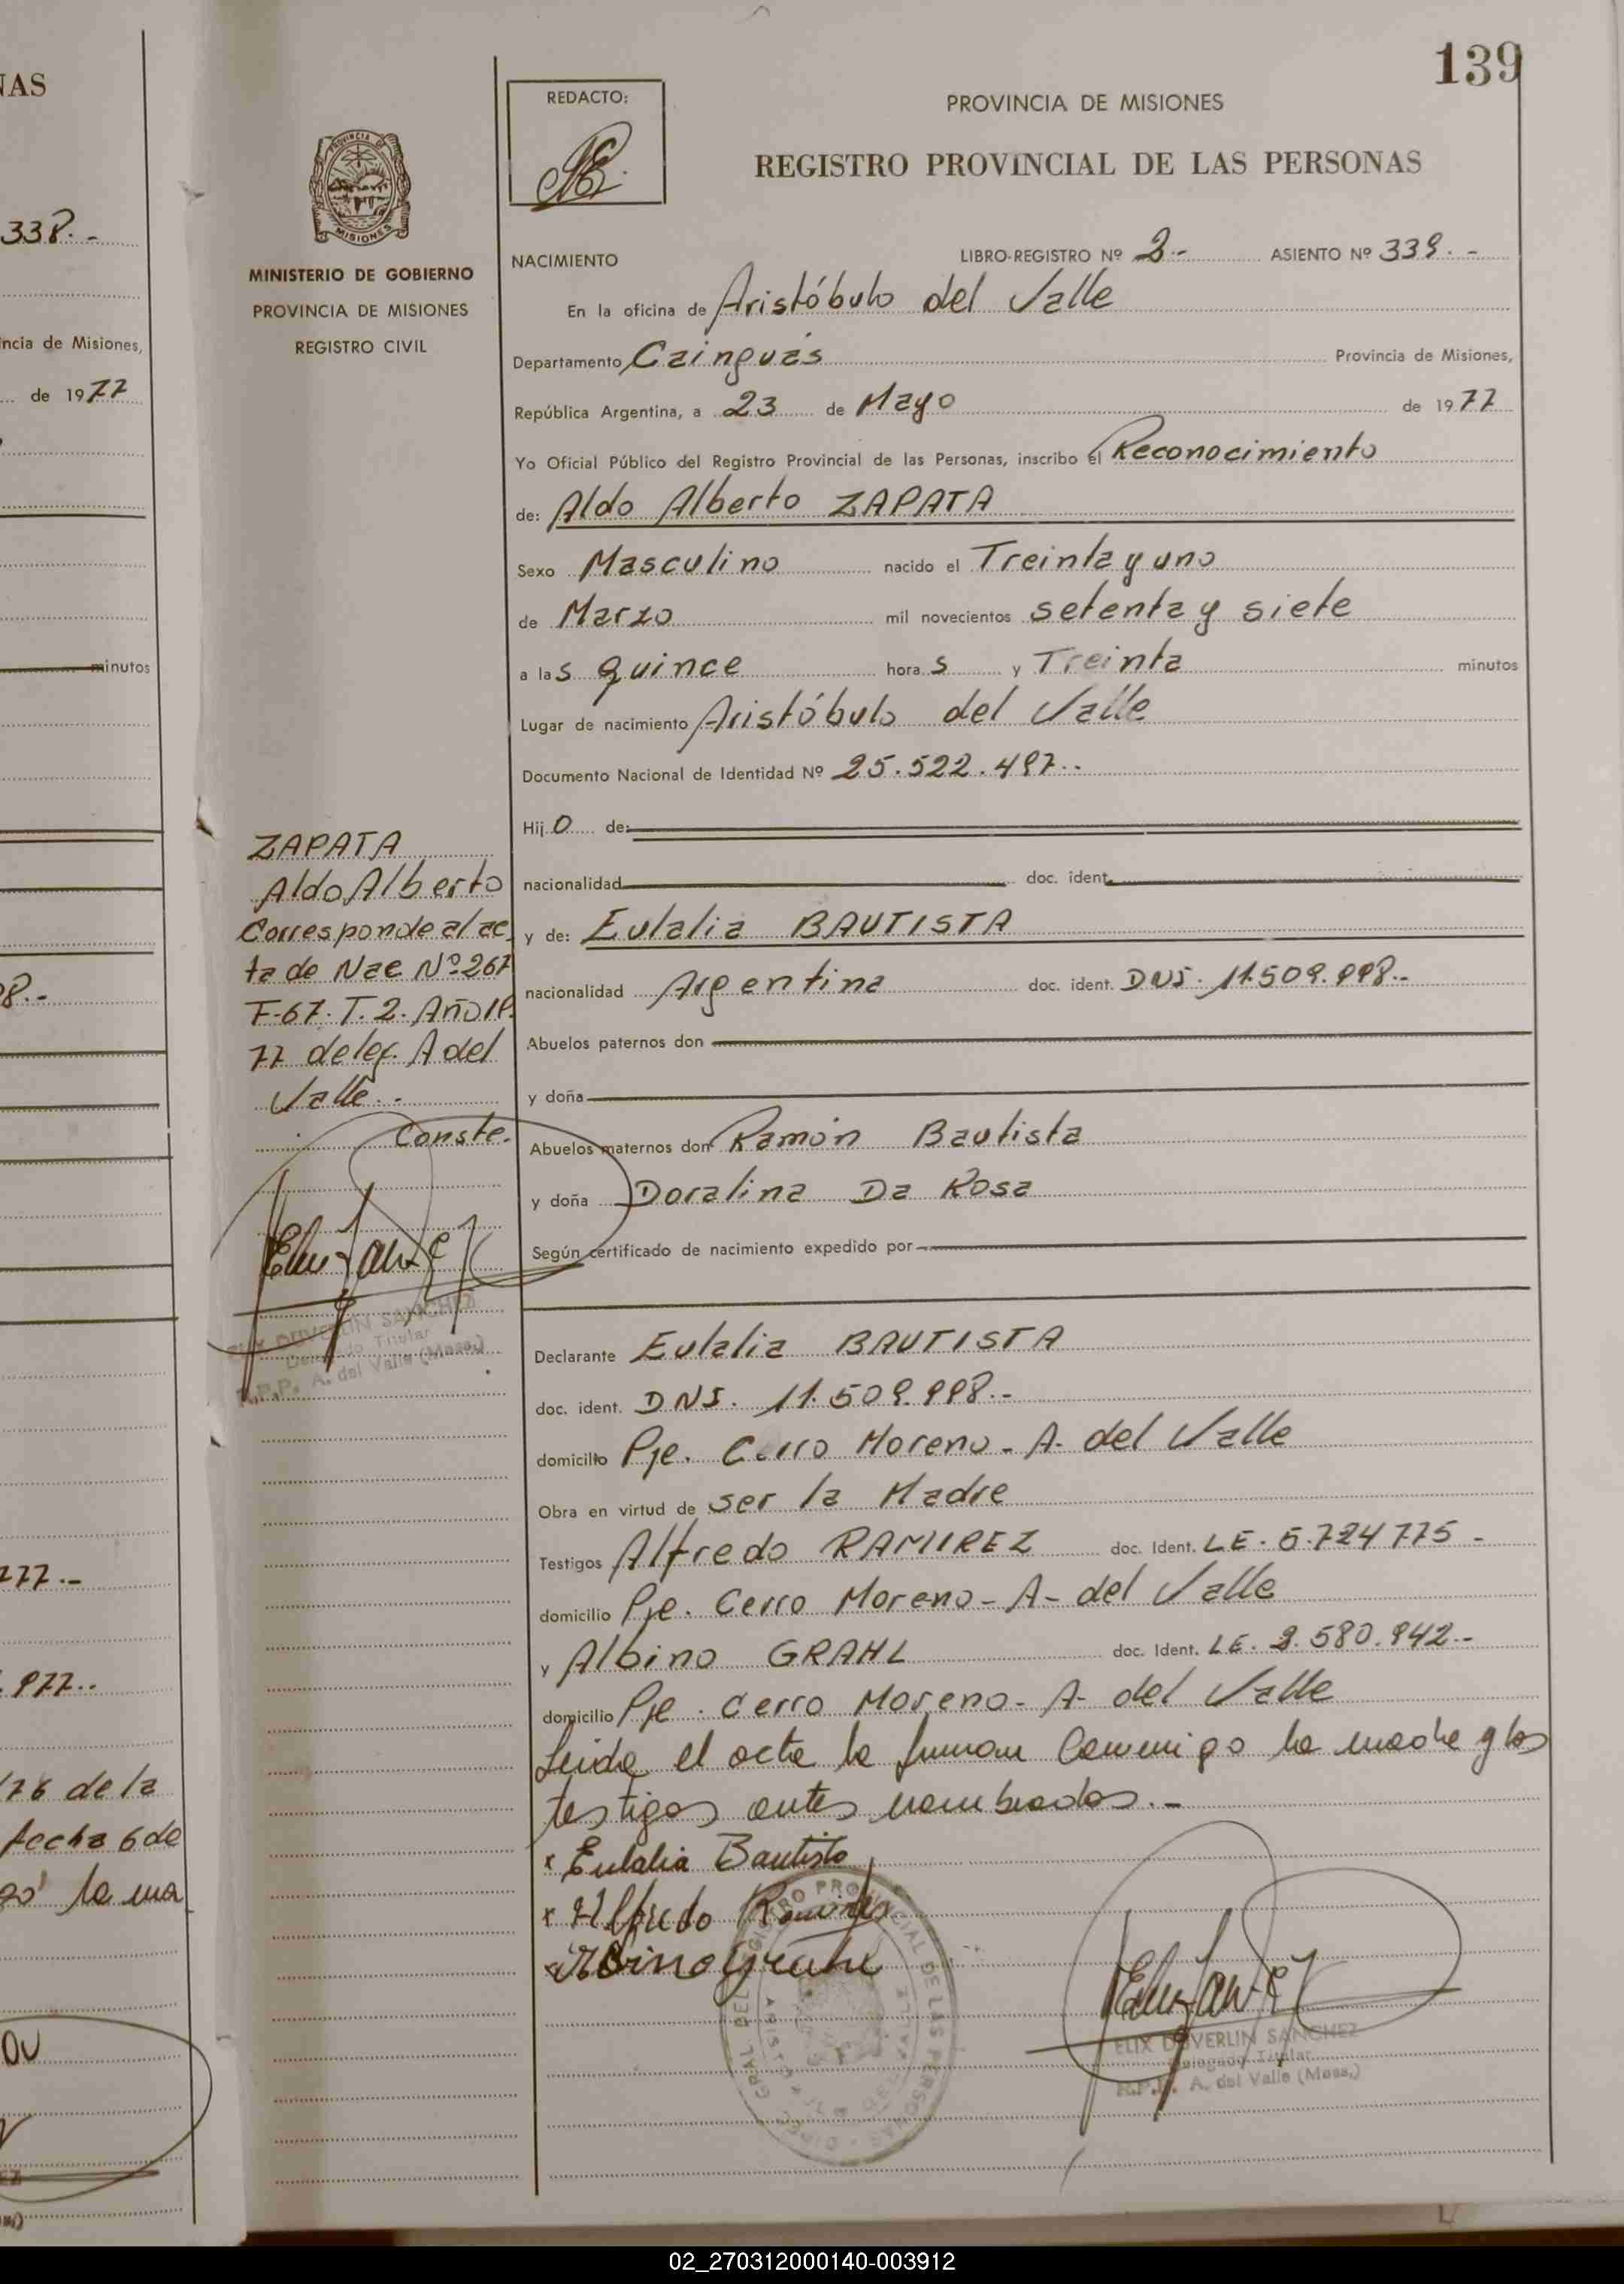 NAS
338.-
ncia de Misiones,
de 1977
minutos
8.-
777.-
977..
176 de la
fecha 6 de
la ma
139
REDACTO:
PROVINCIA DE MISIONES
REGISTRO PROVINCIAL DE LAS PERSONAS
PROVINCIA DE
MISIONES
MINISTERIO DE GOBIERNO
PROVINCIA DE MISIONES
REGISTRO CIVIL
NACIMIENTO
LIBRO-REGISTRO Nº 3.- ASIENTO Nº 339.-
En la oficina de Aristóbulo del Valle
Departamento Cainguás Provincia de Misiones,
República Argentina, a 23 de Mayo de 1977
Yo Oficial Público del Registro Provincial de las Personas, inscribo el Reconocimiento
de: Aldo Alberto ZAPATA
Sexo Masculino nacido el Treinta y uno
de Marzo mil novecientos setenta y siete
a las quince horas y Treinta minutos
Lugar de nacimiento Aristóbulo del Valle
Documento Nacional de Identidad Nº 25.522.497..
Hijo de:
nacionalidad doc. ident.
y de: Eulalia BAUTISTA
nacionalidad Argentina doc. ident. DNI. 11.509.998.-
Abuelos paternos don
y doña
Abuelos maternos don Ramón Bautista
y doña Doralina Da Rosa
Según certificado de nacimiento expedido por
ZAPATA
Aldo Alberto
Corresponde al ac
ta de Nac Nº 267
F-67. T.2. Año 19
77 deleg. A del
Valle.-
Conste.
ELIX DUVERLIN SANCHEZ
Delegado Titular
R.P.P. A. del Valle (Mnes.)
Declarante Eulalia BAUTISTA
doc. ident. DNI. 11.509.998.-
domicilio Pje. Cerro Moreno - A. del Valle
Obra en virtud de ser la Madre
Testigos Alfredo RAMIREZ doc. Ident. LE. 5.724775 -
domicilio Pje. Cerro Moreno - A - del Valle
y Albino GRAHL doc. Ident. LE. 9.580.942.-
domicilio Pje. Cerro Moreno - A - del Valle
Leida el acta la firman conmigo la madre y los
testigos antes nombrados.-
x Eulalia Bautista
x Alfredo Ramirez
x Albino Grahl
ELIX DUVERLIN SANCHEZ
Delegado Titular
R.P.P. A. del Valle (Mnes.)
02_270312000140-003912